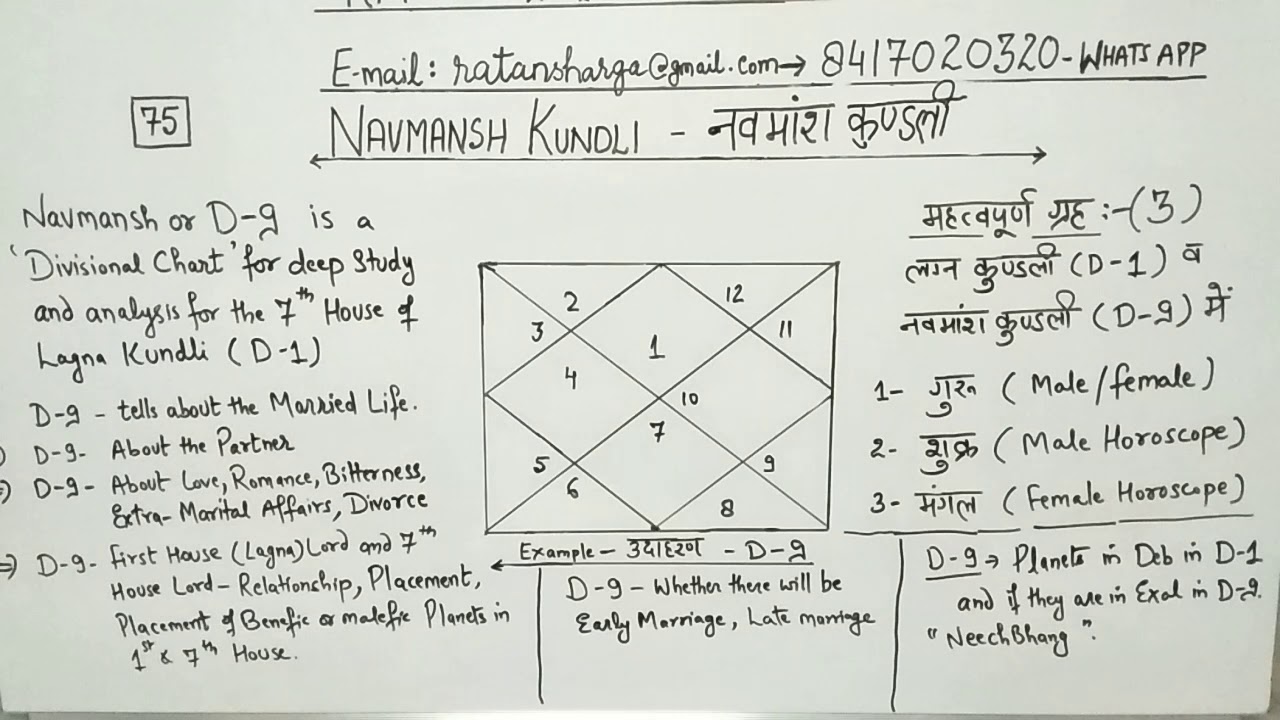 E-mail: ratansharga@gmail.com→ 8417020320-WHATS APP
75
NAVMANSH KUNDLI - नवमांश कुण्डली
Navmansh or D-9 is a
'Divisional Chart' for deep Study
and analysis for the 7th House of
Lagna Kundli (D-1)
D-9 - tells about the Married Life.
D-9- About the Partner
D-9- About Love, Romance, Bitterness,
Extra-Marital Affairs, Divorce
⇒ D-9- First House (Lagna) Lord and 7th
House Lord- Relationship, Placement,
Placement of Benefic or malefic Planets in
1st & 7th House.
2
12
3
11
1
4
10
7
5
9
6
8
Example- उदाहरण - D-9
D-9- Whether there will be
Early Marriage, Late marriage
महत्वपूर्ण ग्रह :-(3)
लग्न कुण्डली (D-1) व
नवमांश कुण्डली (D-9) में
1- गुरू (Male/female)
2- शुक्र (Male Horoscope)
3- मंगल (Female Horoscope)
D-9→ Planets in Deb in D-1
and if they are in Exal in D-9.
"NeechBhang".